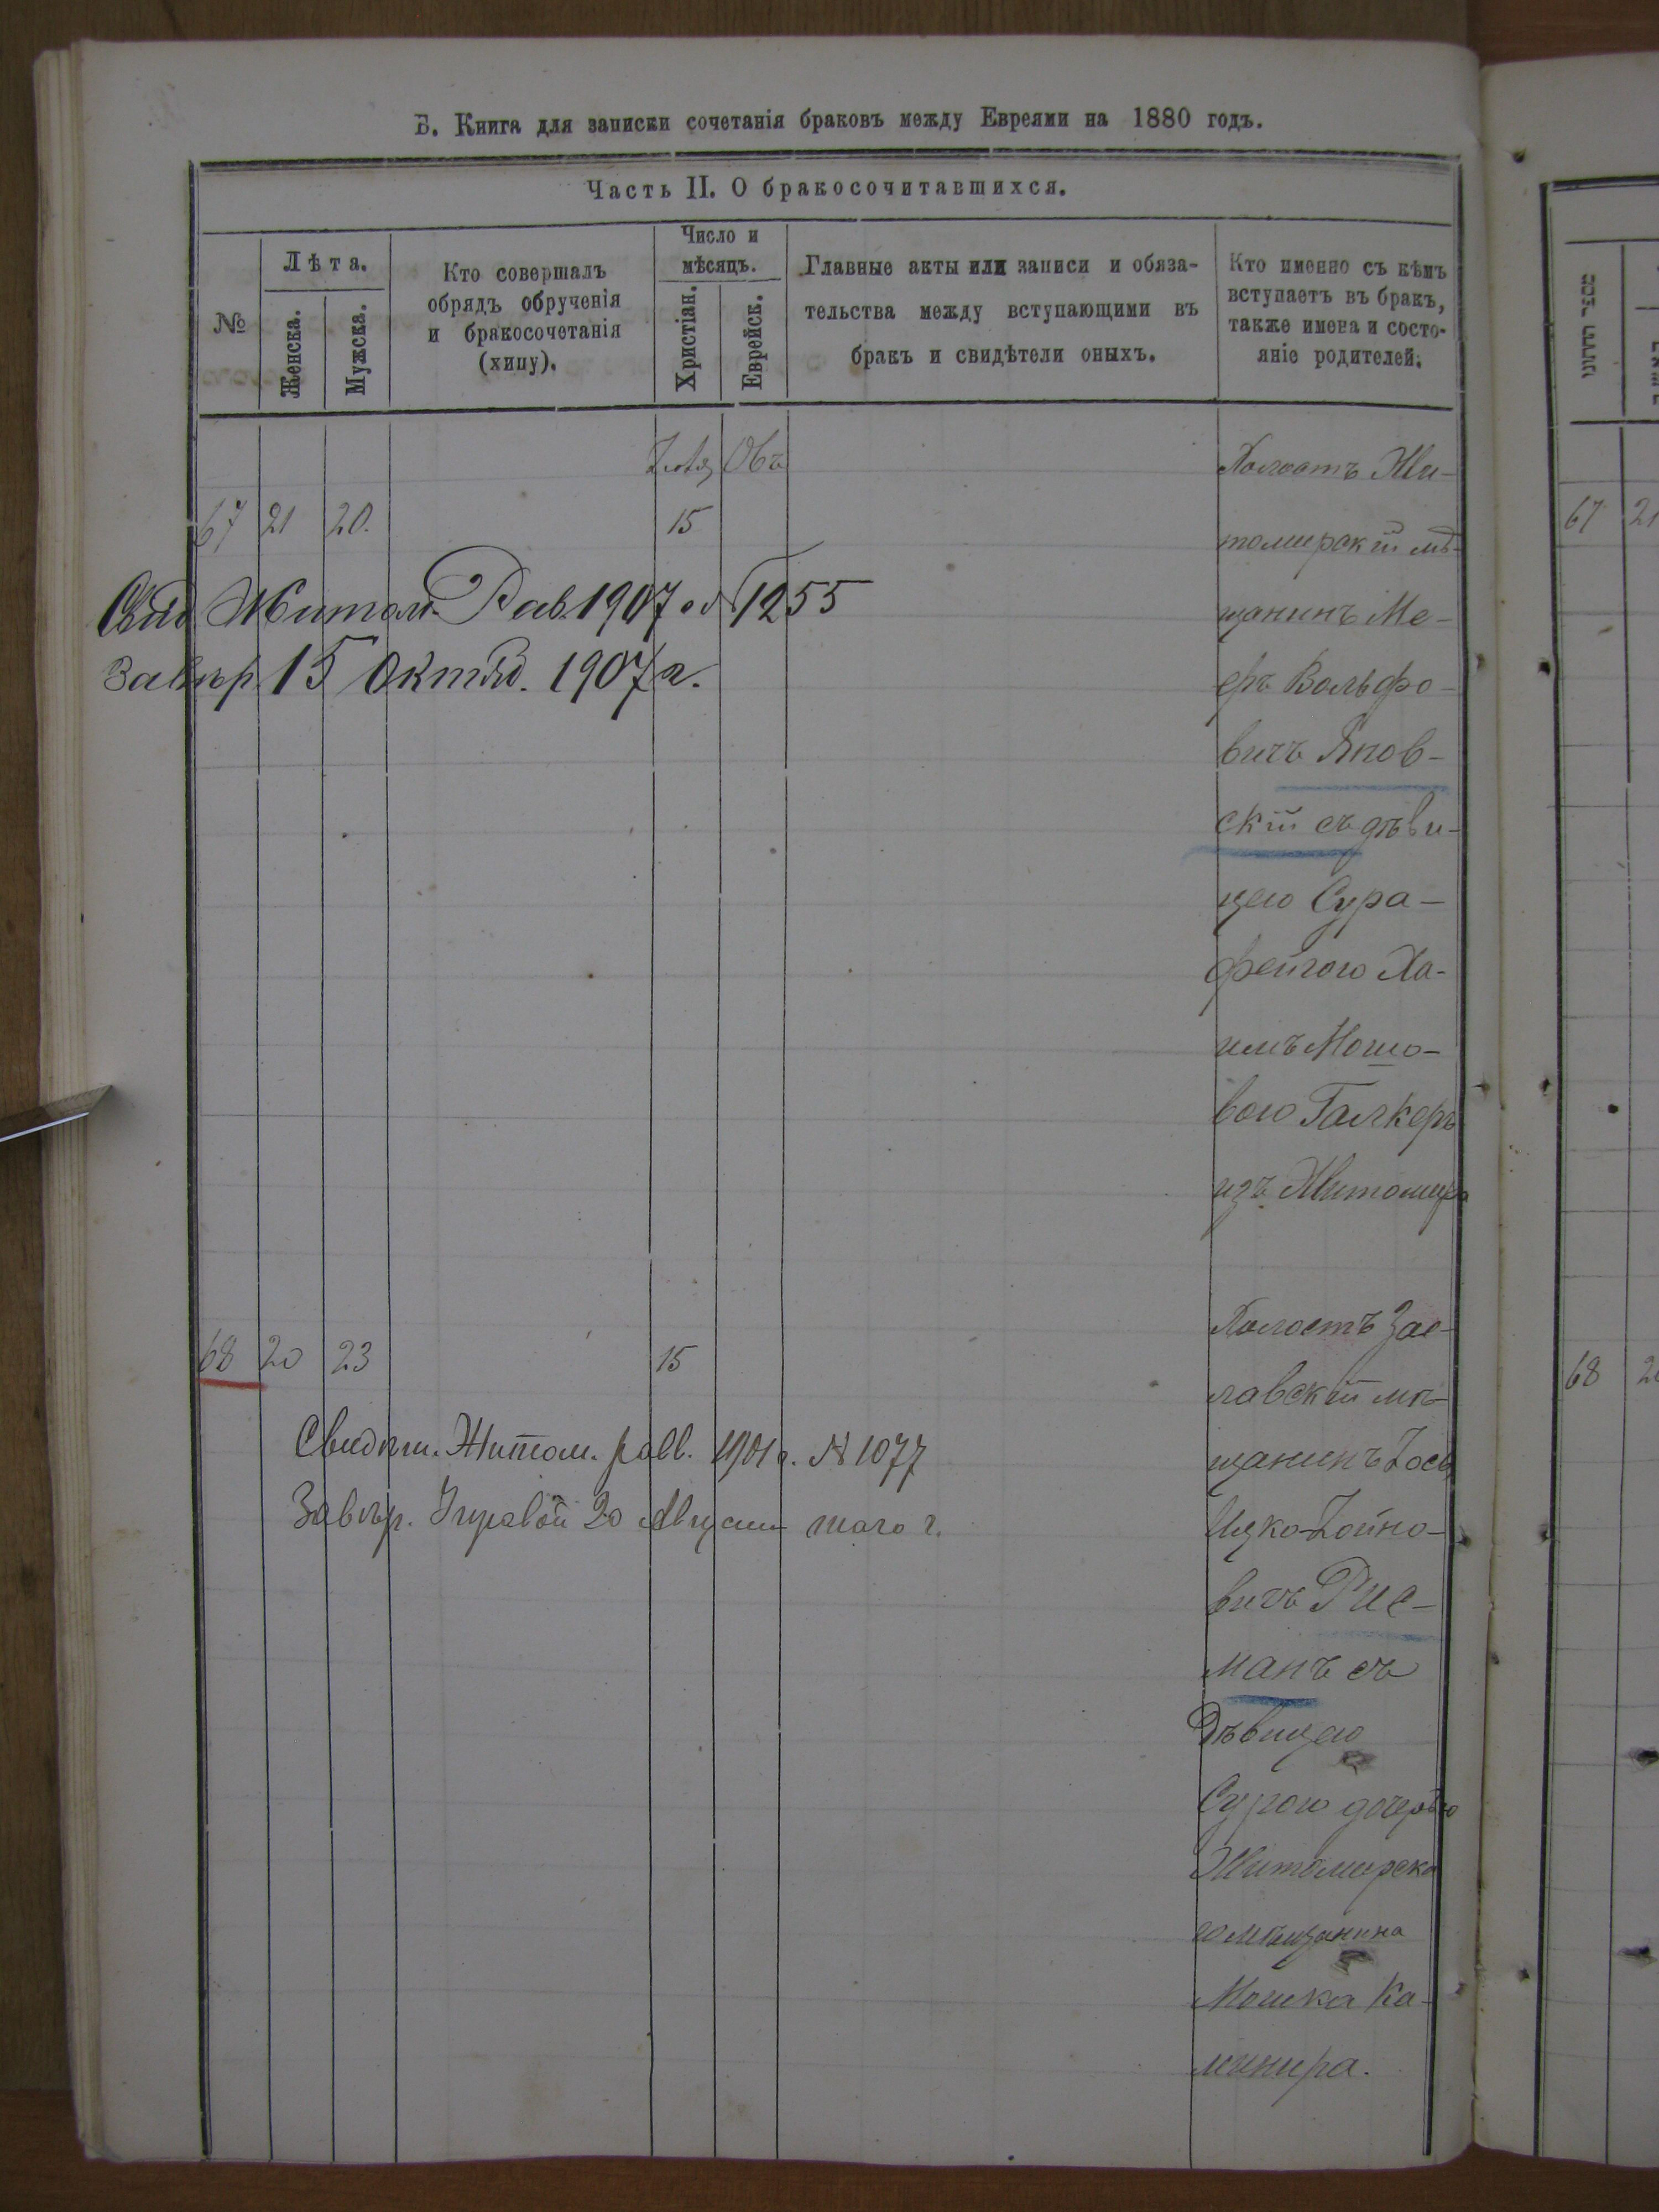 Б. Книга для записки сочетанія браковъ между Евреями на 1880 годъ.
Часть II. О бракосочитавшихся.
№
Лѣта.
Женска.
Мужска.
Кто совершалъ
обрядъ обрученія
и бракосочетанія
(хипу).
Число и
мѣсяцъ.
Христіан.
Еврейск.
Главные акты или записи и обяза-
тельства между вступающими въ
бракъ и свидѣтели оныхъ.
Кто именно съ кѣмъ
вступаетъ въ бракъ,
также имена и состо-
яніе родителей.
Овъ
67 21 20. 15
Холостъ Жи-
томирскій мѣ-
щанинъ Ме-
еръ Вольфо-
вичъ Янов-
скій съ дѣви-
цею Сура-
Фейгою Ха-
имъ Мошо-
вою Галкеръ
изъ Житомира
Свид Житом. Рав. 1907 № 1255
Завѣр. 15 Октяб. 1907 г.
68 20 23 15
Холостъ Зас-
лавскій мѣ-
щанинъ Іось
Ицко-Хойно-
вичъ Рис-
манъ съ
Дѣвицею
Сурою дочерью
Житомирска
го мѣщанина
Мошка Ка-
минира.
Свидѣт. Житом. равв. 1901 г. № 1077
Завѣр. 20 Август того г.
67 21
68 2